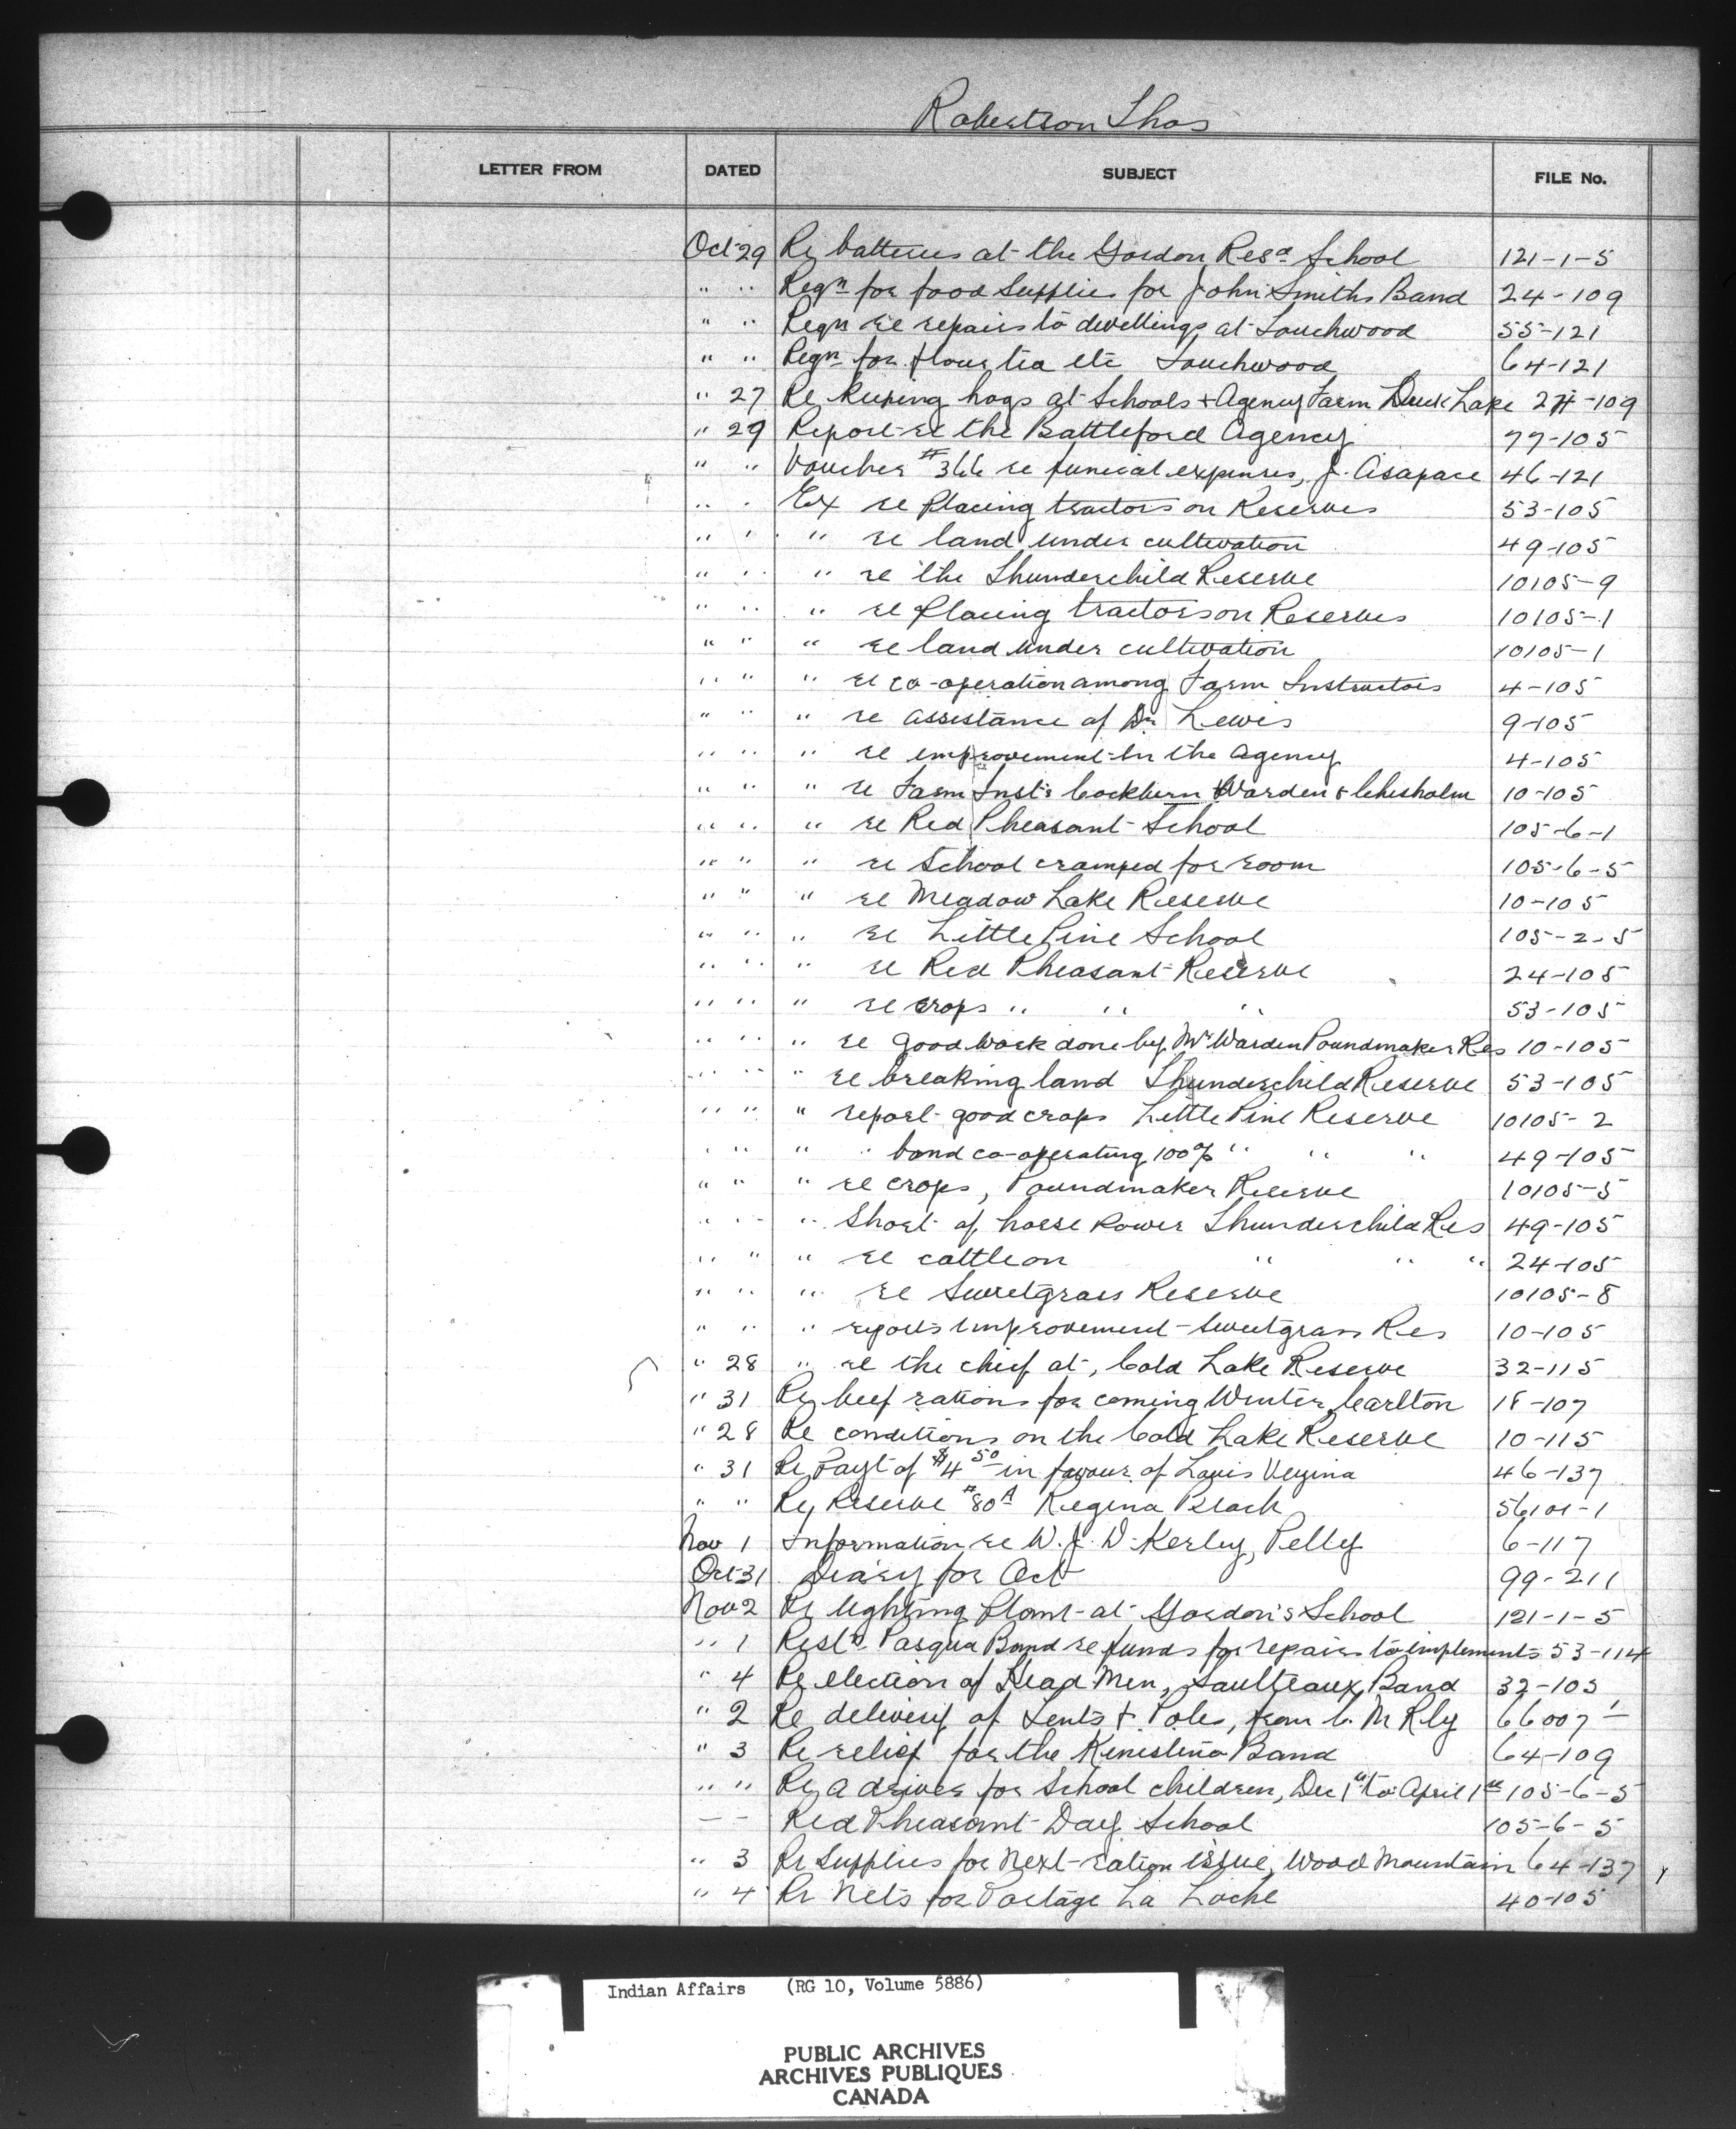 Robertson Thos
LETTER FROM DATED SUBJECT FILE No.
Oct 29 Re batteries at the Gordon Resd School 121-1-5
" " Reqn for food supplies for John Smiths Band 24-109
" " Reqn re repairs to dwellings at Touchwood 55-121
" " Reqn for flour tea etc Touchwood 64-121
" 27 Re keeping hogs at Schools + Agency Farm Duck Lake 24-109
" 29 Report re the Battleford Agency 77-105
" " Voucher #366 re funeral expenses, J. Asapace 46-121
" " Ex re placing tractors on Reserves 53-105
" " " re land under cultivation 49-105
" " " re the Thunderchild Reserve 10105-9
" " " re placing tractors on Reserves 10105-1
" " " re land under cultivation 10105-1
" " " re co-operation among Farm Instructors 4-105
" " " re assistance of Dr Lewis 9-105
" " " re improvement in the agency 4-105
" " " re Farm Inst's Cockburn Warden & Chisholm 10-105
" " " re Red Pheasant School 105-6-1
" " " re School cramped for room 105-6-5
" " " re Meadow Lake Reserve 10-105
" " " re Little Pine School 105-2-5
" " " re Red Pheasant Reserve 24-105
" " " re crops " " " 53-105
" " " re good work done by Mr Warden Poundmaker Res 10-105
" " " re breaking land Thunderchild Reserve 53-105
" " " report good crops Little Pine Reserve 10105-2
" " " " band co-operating 100% " " " 49-105
" " " re crops, Poundmaker Reserve 10105-5
" " " Short of horse power Thunderchild Res 49-105
" " " re cattle on " " " 24-105
" " " re Sweetgrass Reserve 10105-8
" " " reports improvement Sweetgrass Res 10-105
" 28 " re the chief at, Cold Lake Reserve 32-115
" 31 Re beef rations for coming Winter, Carlton 18-107
" 28 Re conditions on the Cold Lake Reserve 10-115
" 31 Re Payt of $4 50 in favour of Louis Vezina 46-137
" " Re Reserve #80A Regina Beach 56101-1
Nov 1 Information re W. J. D. Kerley, Pelly 6-117
Oct 31 Diary for Oct 99-211
Nov 2 Re lighting plant at Gordon's School 121-1-5
" 1 Pasqua Band re funds for repairs to implements 53-114
" 4 Re election of Head Men, Saulteaux Band 32-105
" 2 Re delivery of Tents & Poles, from C. N Rly 66007-1
" 3 Re relief for the Kinistino Band 64-109
" " Re a driver for School children, Dec 1st to April 1st 105-6-5
- - Red Pheasant Day School 105-6-5
" 3 Re Supplies for Next ration issue, Wood Mountain 64-137
" 4 Re Nets for Portage La Loche 40-105
Indian Affairs (RG 10, Volume 5886)
PUBLIC ARCHIVES
ARCHIVES PUBLIQUES
CANADA